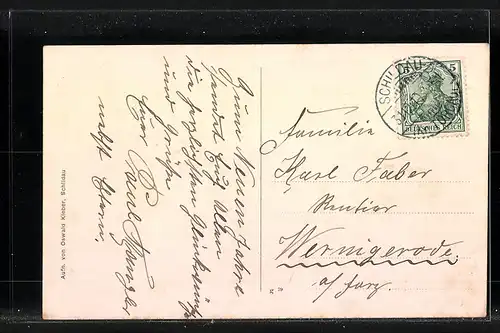 Zum Neuen Jahre
sendet Euch Allen
die herzlichsten Glückwünsche
und Grüße
Euer Paul
nebst Eltern.
Aufn. von Oswald Kleber, Schildau
SCHILDAU
5
DEUTSCHES REICH
Familie
Karl Faber
Rentier
Wernigerode
a/Harz.